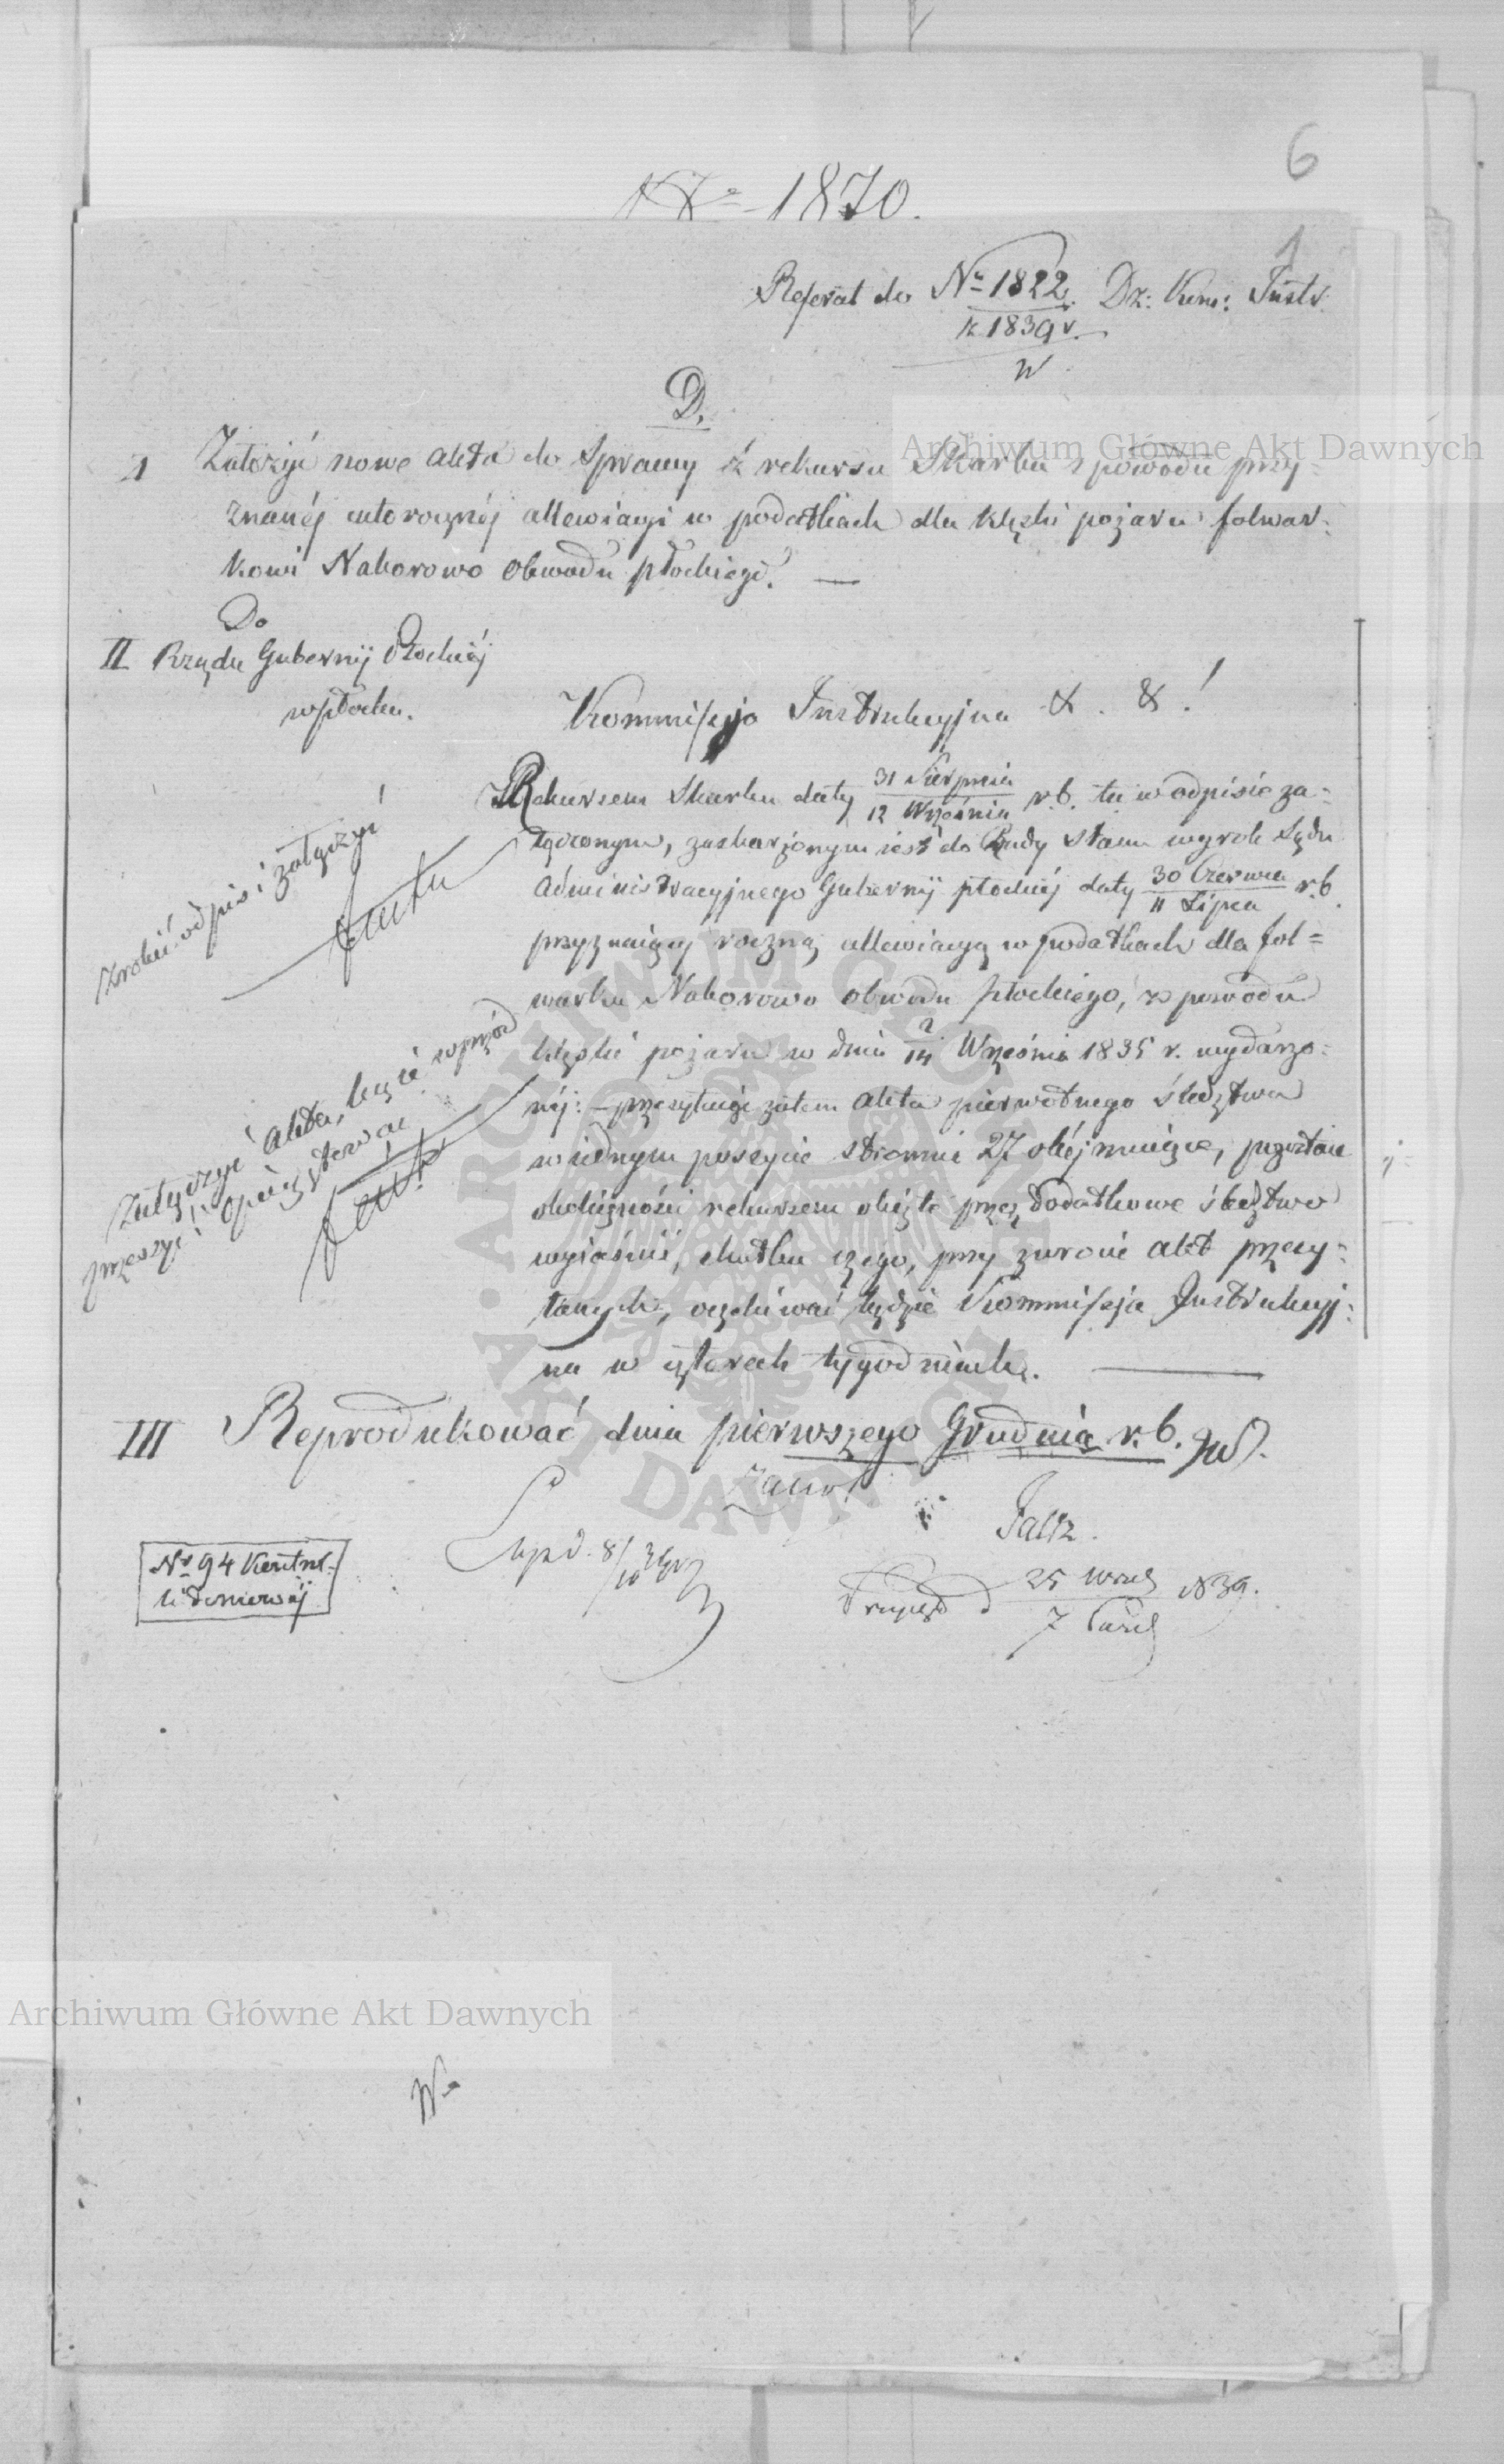 6
No 1870.
1
Referat do No 1822 Dz: Kom: Instr.
z 1839 r.
W
D.
I Założyć nowe akta do Sprawy z rekursu Skarbu z powodu przy=
znanéj całorocznéj allewiacyi w podatkach dla klęski pożaru folwar=
kowi Naborowo Obwodu płockiego. —
Do
II Rządu Gubernij Płockiéj
w płocku.
Kommissyja Instrukcyjna & . & !
Rekursem Skarbu daty 31 Sierpnia / 12 Września r. b. tu w odpisie za=
łączonym, zaskarżonym iest do Rady Stanu wyrok Sądu
Administracyjnego Gubernij płockiéj daty 30 Czerwca / 11 Lipca r. b.
przyznaiący roczną allewiacyą w podatkach dla fol=
warku Naborowo obwodu płockiego, z powodu
klęski pożaru w dniu 2/14 Września 1835 r. wydarzo=
néj: – przesyłaiąc zatem akta pierwotnego śledztwa
w iednym poszycie stronnic 27 obéjmuiące,
okoliczności rekursem obięte przez dodatkowe śledztwo
wyiaśnić, skutku czego, przy zwrocie akt przesy=
łanych, oczekiwać będzie Kommissja Instrukcyj=
na w czterech tygodniach. —
Zrobić odpis i załączyć
Załączyć akta, lecz ie wprzód
przeszyć i opaginstrować
III Reprodukować dnia pierwszego Grudnia r. b.
No 94 Kontrol=
li Terminowéj
Exped. 8/10
25 Wrześ / 7 Paźd 839.
Archiwum Główne Akt Dawnych
Archiwum Główne Akt Dawnych
ARCHIWUM GŁÓWNE
AKT DAWNYCH